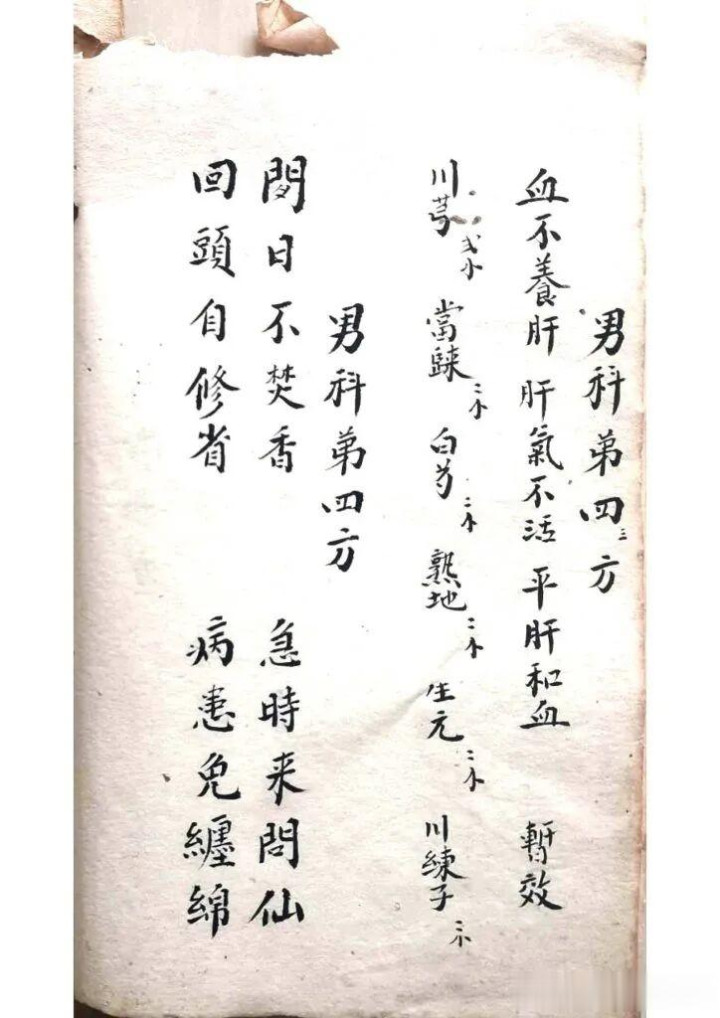 男科第四三方
血不養肝 肝氣不活 平肝和血 暫效
川芎 弍小 當歸 二小 白芍 二小 熟地 二小 生元 二小 川練子 三小
男科第四方
閔日不焚香 急時来問仙
回頭自修省 病患免纏綿